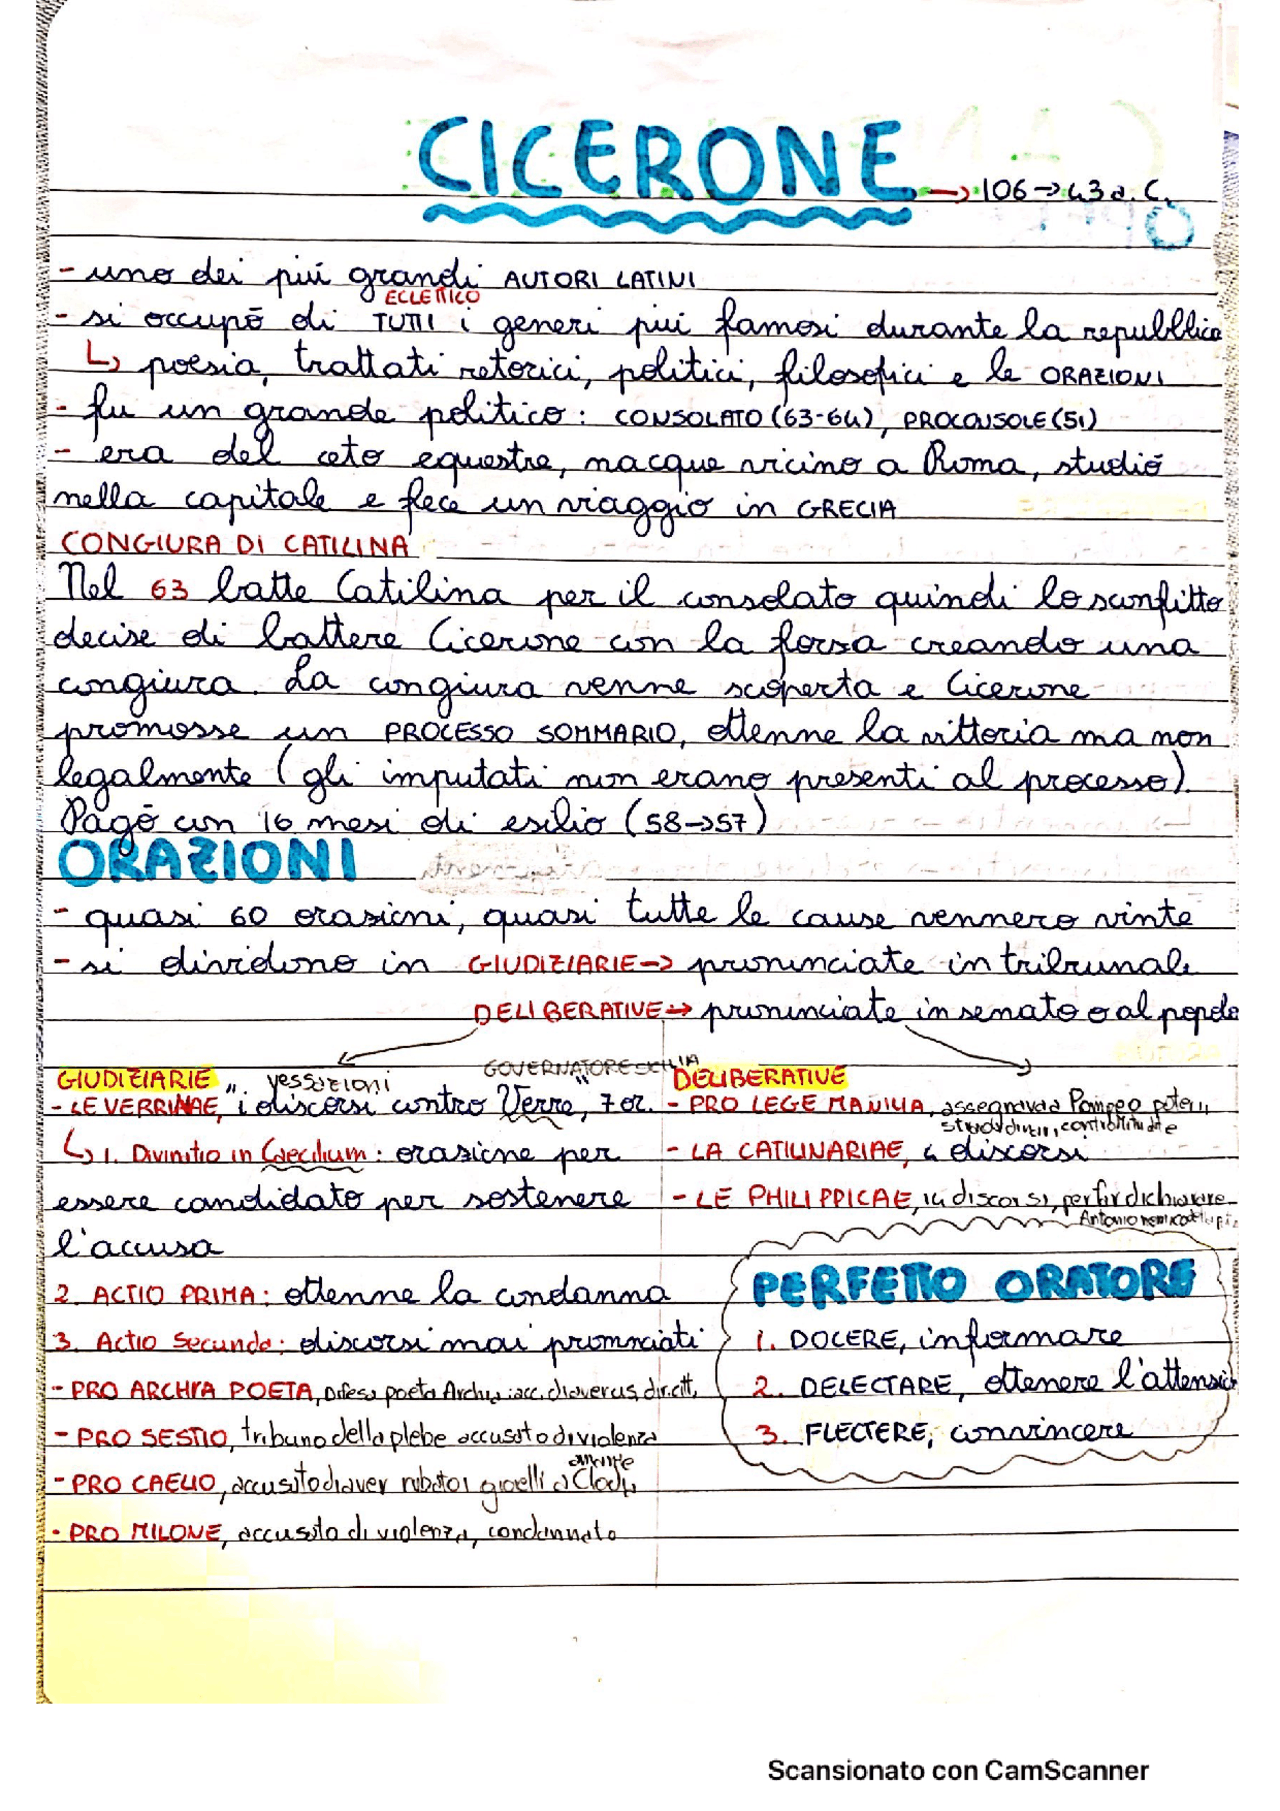 CICERONE → 106 → 43 a.C.
- uno dei più grandi AUTORI LATINI
ECLETTICO
- si occupò di TUTTI i generi più famosi durante la repubblica
↳ poesia, trattati retorici, politici, filosofici e le ORAZIONI
- fu un grande politico: CONSOLATO (63-64), PROCONSOLE (51)
- era del ceto equestre, nacque vicino a Roma, studiò
nella capitale e fece un viaggio in GRECIA
CONGIURA DI CATILINA
Nel 63 batte Catilina per il consolato quindi lo sconfitto
decise di battere Cicerone con la forza creando una
congiura. La congiura venne scoperta e Cicerone
promosse un PROCESSO SOMMARIO, ottenne la vittoria ma non
legalmente (gli imputati non erano presenti al processo).
Pagò con 16 mesi di esilio (58→57)
ORAZIONI
- quasi 60 orazioni, quasi tutte le cause vennero vinte
- si dividono in GIUDIZIARIE → pronunciate in tribunale
DELIBERATIVE → pronunciate in senato o al popolo
GIUDIZIARIE
vessazioni
GOVERNATORE SICILIA
- LE VERRINAE, "i discorsi contro Verre", 7 or.
↳ 1. Divinitio in Caecilium: orazione per
essere candidato per sostenere
l'accusa
2. ACTIO PRIMA: ottenne la condanna
3. Actio Secunda: discorsi mai pronunciati
- PRO ARCHIA POETA, Difesa poeta
- PRO SESTIO, tribuno della plebe accusato di violenza
amante
- PRO CAELIO, accusato di aver rubato i gioielli a Clodia
- PRO MILONE, accusato di violenza, condannato
DELIBERATIVE
- PRO LEGE MANILIA, assegnava a Pompeo poteri
- LA CATILINARIAE, 4 discorsi
- LE PHILIPPICAE, 14 discorsi, per far dichiarare
Antonio nemico
PERFETTO ORATORE
1. DOCERE, informare
2. DELECTARE, ottenere l'attenzio
3. FLECTERE, convincere
Scansionato con CamScanner